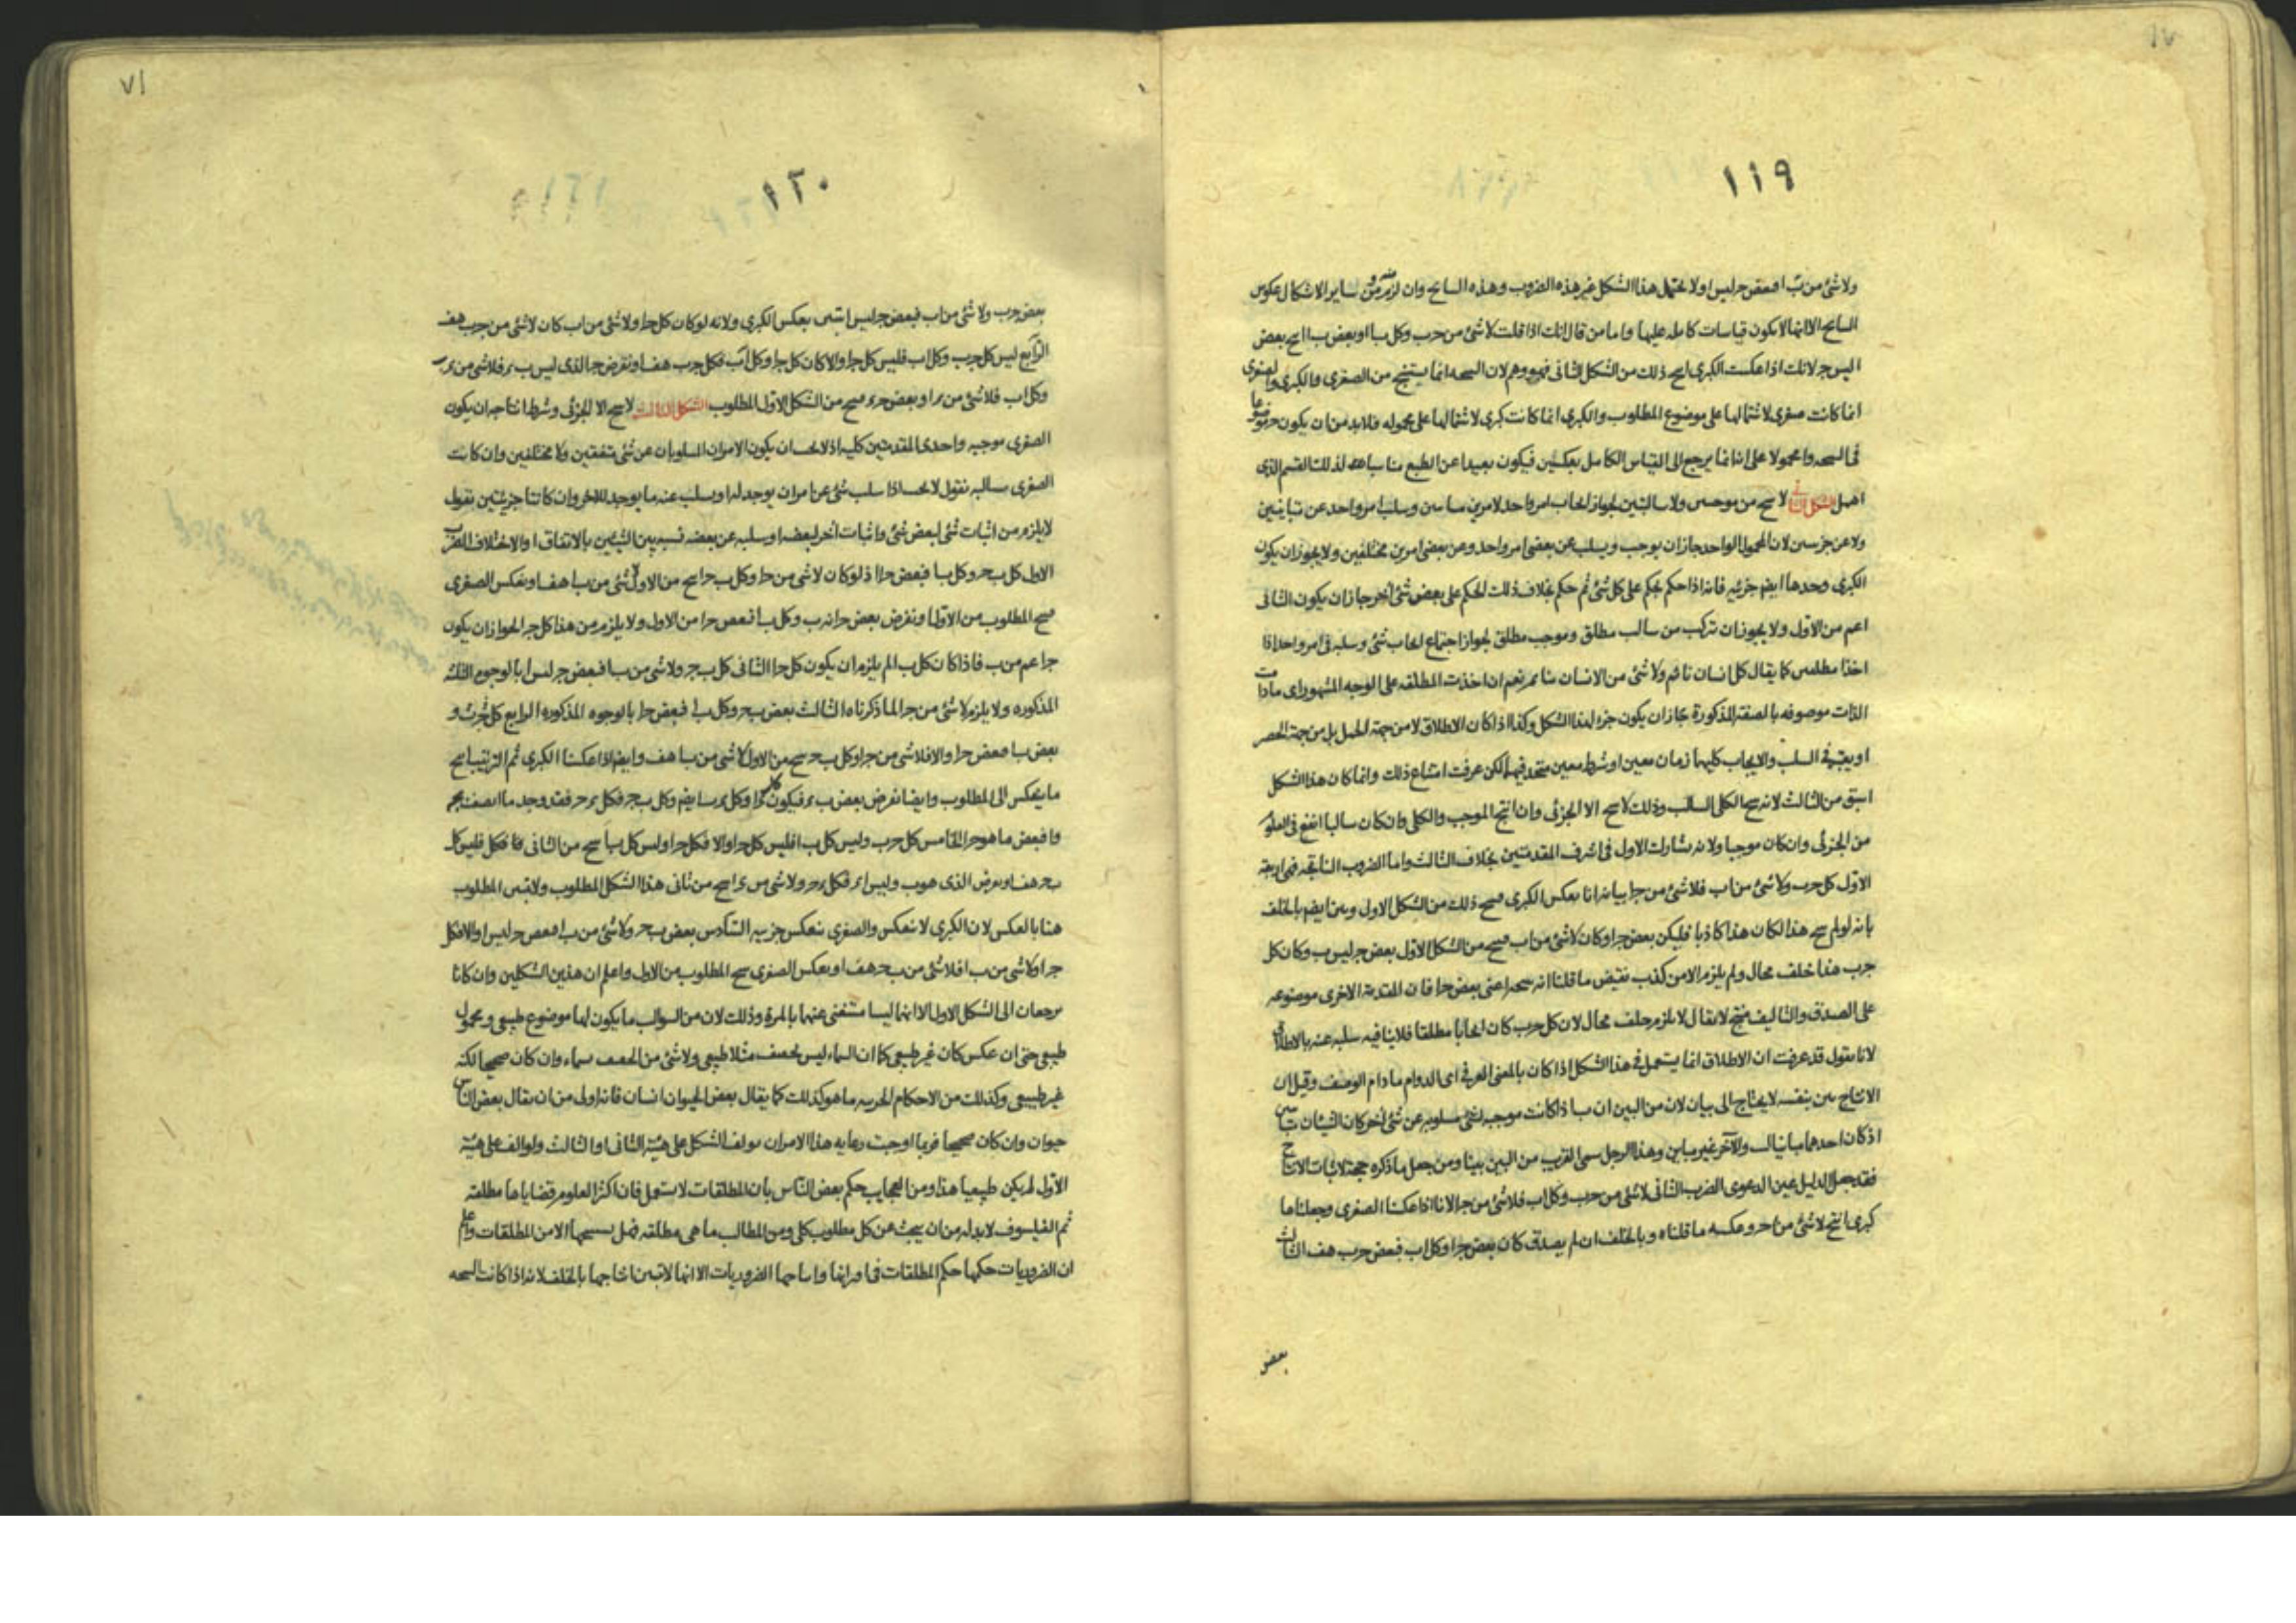 ١١٩
ولا شئ من ب ا فبعض ج ليس ا ولا يحتمل هذا الشكل غير هذه الضروب وهذه النتايج وان لزم من ساير الاشكال عكوس
النتايج الا انها لا يكون قياسات كاملة عليها واما من قال انك اذا قلت لا شئ من ج ب وكل ب ا او بعض ب ا انتج بعض
ا ليس ج لانك اذا عكست الكبرى انتج ذلك من الشكل الثانى فهو وهم لان النتيجه انما يستنتج من الصغرى والكبرى والصغرى
انما كانت صغرى لاشتمالها على موضوع المطلوب والكبرى انما كانت كبرى لاشتمالها على محموله فلا بد من ان يكون ج موضوعا
فى النتيجه وا محمولا على انه انما يرجع الى القياس الكامل بعكسين فيكون بعيدا عن الطبع لذلك القسم الذى
اهمل الشكل الثانى لا ينتج من موجبتين ولا سالبتين لجواز ايجاب امر واحد لامرين متباينين وسلب امر واحد عن متباينين
ولا عن جزئيتين لان المحمول الواحد جاز ان يوجب ويسلب عن بعض امر واحد وعن بعض امرين مختلفين ولا يجوز ان يكون
الكبرى وحدها ايضا جزئيه فانه اذا حكم بحكم على كل شئ ثم حكم بخلاف ذلك الحكم على بعض شئ آخر جاز ان يكون الثانى
اعم من الاول ولا يجوز ان تركب من سالب مطلق وموجب مطلق لجواز اجتماع ايجاب شئ وسلبه فى امر واحد اذا
اخذا مطلقين كما يقال كل انسان نائم ولا شئ من الانسان بنائم نعم ان اخذت المطلقه على الوجه المشهور اى ما دامت
الذات موصوفه بالصفة المذكورة جاز ان يكون جزء لهذا الشكل وكذا اذا كان الاطلاق لا من جهة الحمل بل من جهة الحصر
او يعتبر فى السلب والايجاب كليهما زمان معين او شرط معين متحد فيهما لكن عرفت امتناع ذلك وانما كان هذا الشكل
اسبق من الثالث لانه ينتج الكلى السالب وذلك لا ينتج الا الجزئى وان انتج الموجب والكلى وان كان سالبا انفع فى العلوم
من الجزئى وان كان موجبا ولانه يشارك الاول فى اشرف المقدمتين بخلاف الثالث واما الضروب الناتجه فهى اربعة
الاول كل ج ب ولا شئ من ا ب فلا شئ من ج ا بيانه انا بعكس الكبرى فينتج ذلك من الشكل الاول وبين ايضا بالخلف
بانه لو لم ينتج هذا لكان هذا كاذبا فليكن بعض ج ا وكان لا شئ من ا ب فينتج من الشكل الاول بعض ج ليس ب وكان كل
ج ب هذا خلف محال ولم يلزم الا من كذب نقيض ما قلنا انه ينتجه اعنى بعض ج ا فان المقدمة الاخرى موضوعه
على الصدق والتاليف منتج لا يقال لا يلزم خلف محال لان كل ج ب كان ايجابا مطلقا فلا ينافيه سلبه عنه بالاطلاق
لانا نقول قد عرفت ان الاطلاق انما يستعمل فى هذا الشكل اذا كان بالمعنى العرفى اى الدوام ما دام الوصف وقيل ان
الانتاج بين بنفسه لا يحتاج الى بيان لان من البين ان ب اذا كانت موجبه لشئ مسلوبه عن شئ آخر كان الشيئان متباينين
اذ كان احدهما مباينا لب والآخر غير مباين وهذا الرجل سمى القريب من البين بينا ومن جعل ما ذكره حجة لاثبات الانتاج
فقد جعل الدليل عين الدعوى الضرب الثانى لا شئ من ج ب وكل ا ب فلا شئ من ج ا لانا اذا عكسنا الصغرى وجعلناها
كبرى انتج لا شئ من ا ج وعكسه ما قلناه وبالخلف ان لم يصدق كان بعض ج ا وكل ا ب فبعض ج ب هف الثالث
بعض
٧١
١٢٠
بعض ج ب ولا شئ من ا ب فبعض ج ليس ا تبين بعكس الكبرى ولانه لو كان كل ج ا ولا شئ من ا ب كان لا شئ من ج ب هف
الرابع ليس كل ج ب وكل ا ب فليس كل ج ا والا كان كل ج ا وكل ا ب فكل ج ب هف او نفرض ج الذى ليس ب د فلا شئ من د ب
وكل ا ب فلا شئ من د ا وبعض ج د فينتج من الشكل الاول المطلوب الشكل الثالث لا ينتج الا الجزئى وشرط انتاجه ان يكون
الصغرى موجبه واحدى المقدمتين كليه اذ لا يجب ان يكون الامران المسلوبان عن شئ متفقين ولا مختلفين وان كانت
الصغرى سالبه نقول لا يجب اذا سلب شئ عن امر ان يوجد له او يسلب عنه ما يوجد للاخر وان كانتا جزئيتين نقول
لا يلزم من اثبات شئ لبعض شئ واثبات آخر لبعضه او سلبه عن بعضه نسبه بين الشيئين بالاتفاق او الاختلاف الضرب
الاول كل ب ج وكل ب ا فبعض ج ا اذ لو كان لا شئ من ج ا وكل ب ج انتج من الاول لا شئ من ب ا هف او نعكس الصغرى
فينتج المطلوب من الاول او نفرض بعض ج انه ب وكل ب ا فبعض ج ا من الاول ولا يلزم من هذا كل ج ا لجواز ان يكون
ج اعم من ب فاذا كان كل ب ا لم يلزم ان يكون كل ج ا الثانى كل ب ج ولا شئ من ب ا فبعض ج ليس ا بالوجوه الثلثه
المذكوره ولا يلزم لا شئ من ج ا لما ذكرناه الثالث بعض ب ج وكل ب ا فبعض ج ا بالوجوه المذكوره الرابع كل ب ج و
بعض ب ا فبعض ج ا والا فلا شئ من ج ا وكل ب ج ينتج من الاول لا شئ من ب ا هف وايضا اذا عكسنا الكبرى ثم الترتيب انتج
ما ينعكس الى المطلوب وايضا نفرض بعض ب د فيكون كل د ا وكل د ب ايضا وكل ب ج فكل د ج فقد وجد ما اتصف بج
وا فبعض ما هو ج ا الخامس كل ب ج وليس كل ب ا فليس كل ج ا والا فكل ج ا وليس كل ب ا ينتج من الثانى فليس كل
ب ج هف او نفرض الذى هو ب وليس ا د فكل د ج ولا شئ من د ا ينتج من ثانى هذا الشكل المطلوب ولا تبين المطلوب
هنا بالعكس لان الكبرى لا تنعكس والصغرى تنعكس جزئيه السادس بعض ب ج ولا شئ من ب ا فبعض ج ليس ا والا فكل
ج ا ولا شئ من ب ا فلا شئ من ب ج هف او بعكس الصغرى ينتج المطلوب من الاول واعلم ان هذين الشكلين وان كانا
يرجعان الى الشكل الاول الا انهما ليسا مستغنى عنهما بالمرة وذلك لان من السوالب ما يكون لها موضوع طبيعى ومحمول
طبيعى حتى ان عكس كان غير طبيعى كما ان السماء ليس بخفيف مثلا طبيعى ولا شئ من الخفيف بسماء وان كان صحيحا لكنه
غير طبيعى وكذلك من الاحكام الجزئيه ما هو كذلك كما يقال بعض الحيوان انسان فانه اولى من ان يقال بعض الناس
حيوان وان كان صحيحا فربما اوجبت رعاية هذا الامر ان يولف الشكل على هيئة الثانى او الثالث ولو الف على هيئة
الاول لم يكن طبيعيا هذا ومن العجايب حكم بعض الناس بان المطلقات لا يستعمل فان اكثر العلوم قضاياها مطلقة
ثم الفيلسوف لا بد له من ان يبحث عن كل مطلوب كلى ومن المطالب ما هى مطلقه فهل ينتجها الا من المطلقات واعلم
ان الضروريات حكمها حكم المطلقات فى اقترانها وانتاجها الضروريات الا انها لا تبين انتاجها بالخلف لانه اذا كانت النتيجه